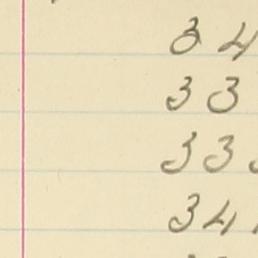 34
33
33
34